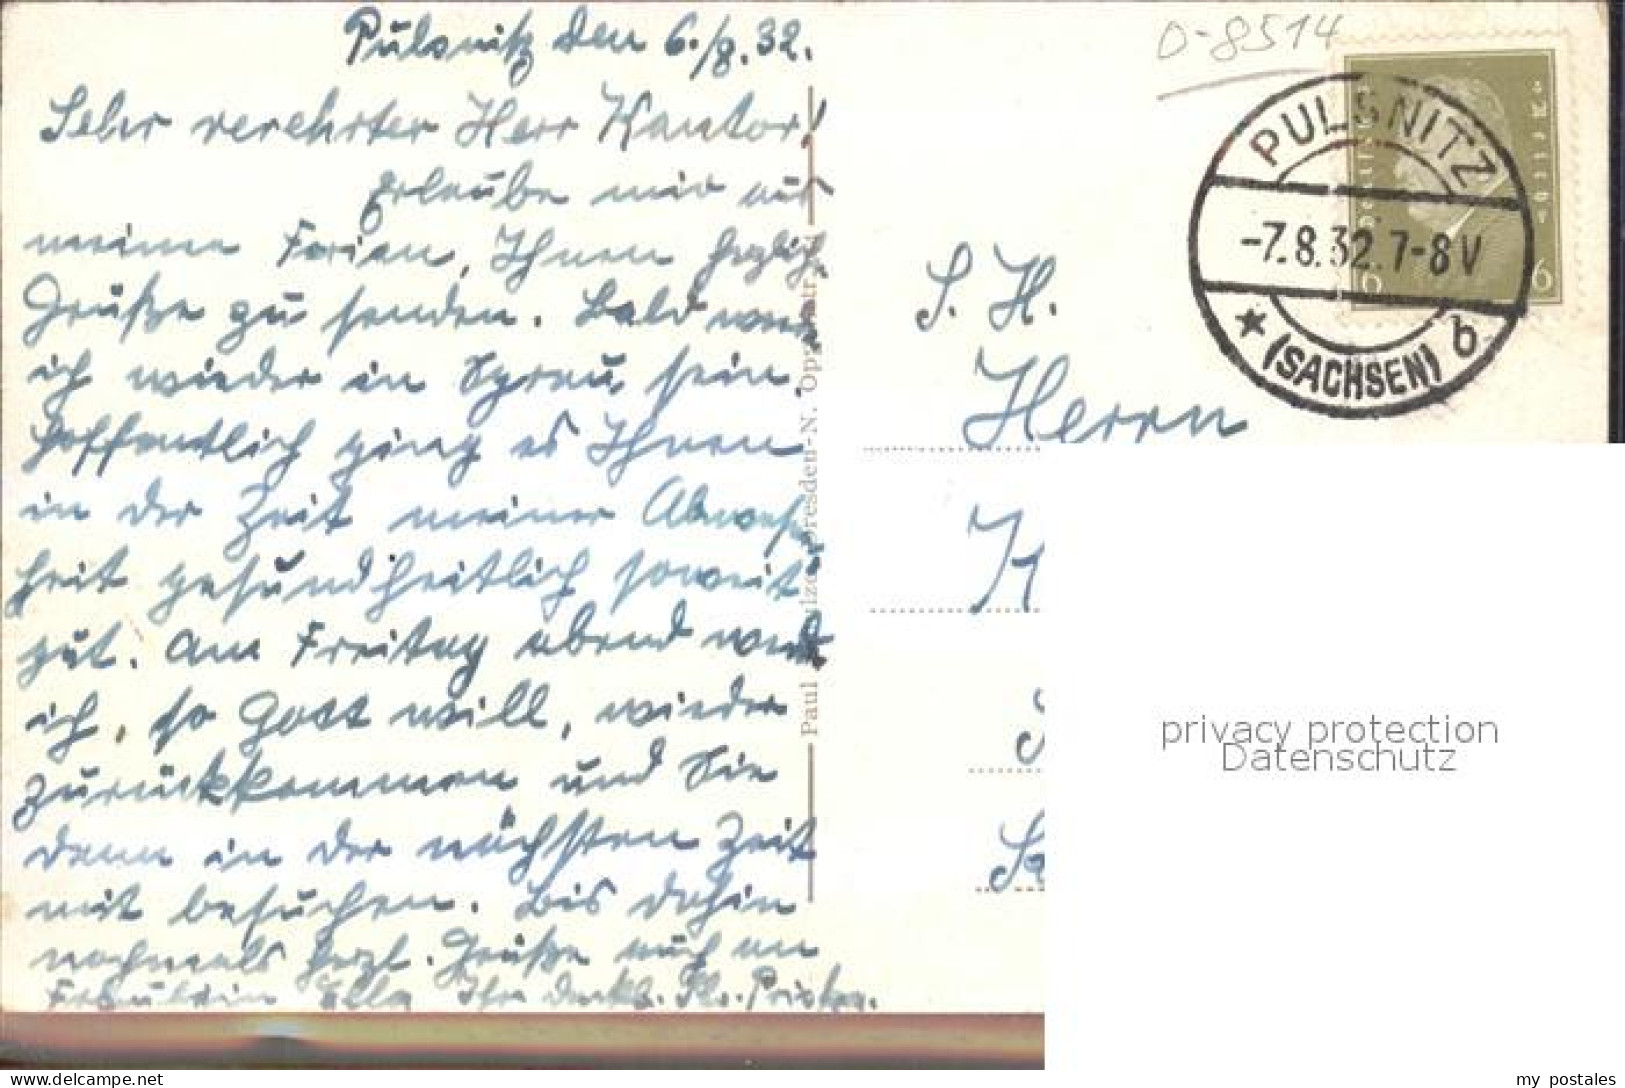 Pulsnitz den 6./8. 32.
Sehr verehrter Herr Kantor!
Erlaube mir aus
meinen Ferien, Ihnen herzlich
Grüße zu senden. Bald werde
ich wieder in Spreu sein.
Hoffentlich ging es Ihnen
in der Zeit meiner Abwesen
heit gesundheitlich soweit
gut. Am Freitag abend werde
ich, so Gott will, wieder
zurückkommen und Sie
dann in der nächsten Zeit
mit besuchen. Bis dahin
nochmals herzl. Grüße auch an
Fräulein Ella Ihr dankb.
Paul
Dresden-N.
D-8514
PULSNITZ
-7.8.32.7-8V
(SACHSEN) b
Deutsches Reich
6 6
S. H.
Herrn
privacy protection
Datenschutz
www.delcampe.net
my_postales